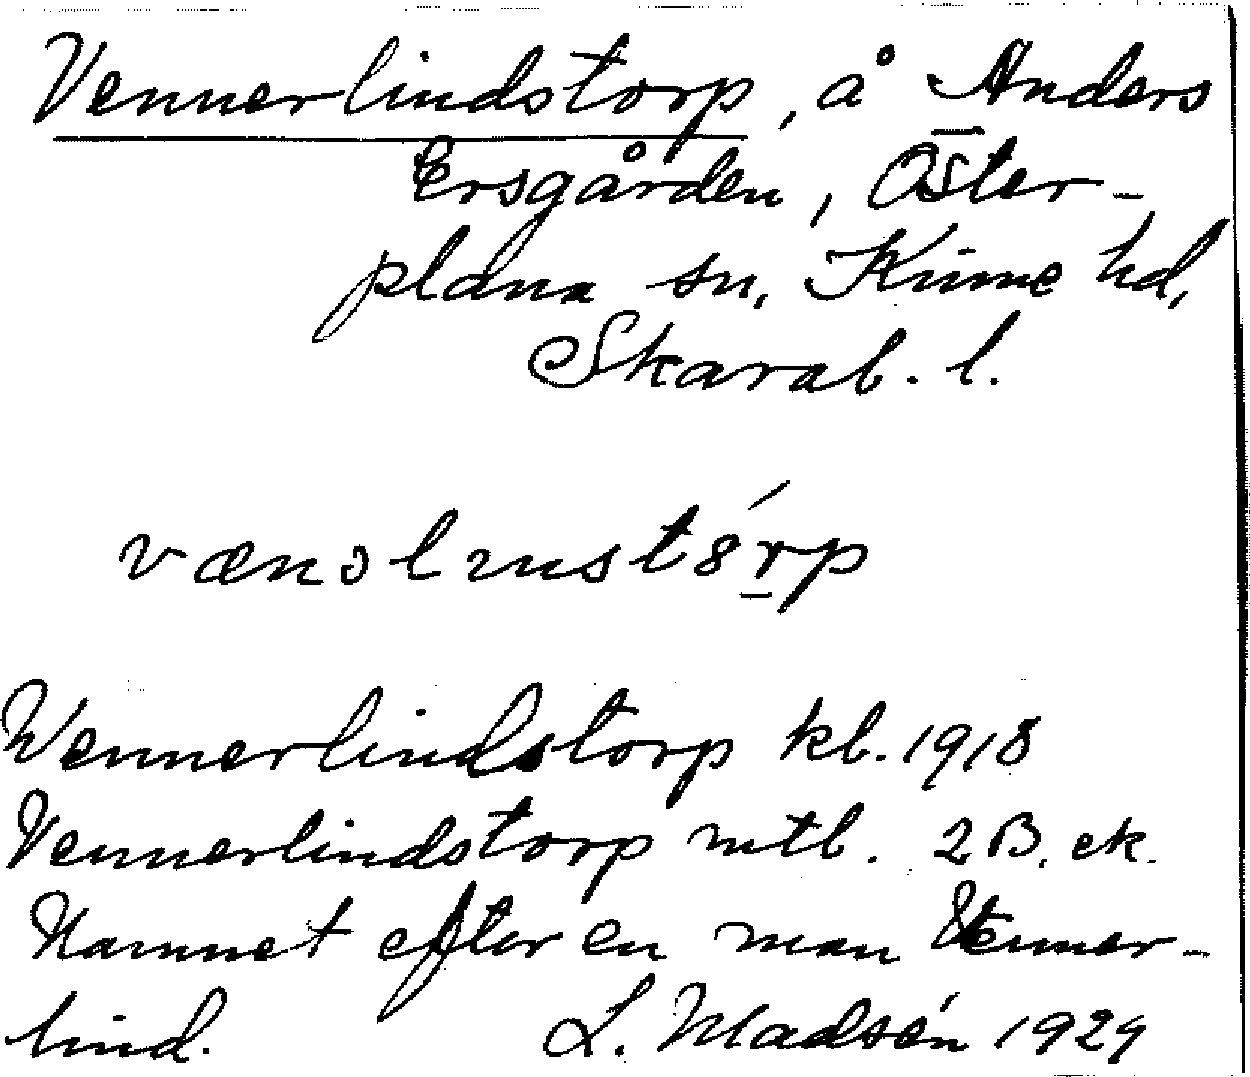 Vennerlindstorp, å Anders
Ersgården, Öster-
plana sn, Kinne hd,
Skarab. l.
vænɔlɩnstórp
Wennerlindstorp kb. 1918
Vennerlindstorp mtb. 2 B. ek.
Namnet efter en man Venner-
lind. L. Madsén 1929